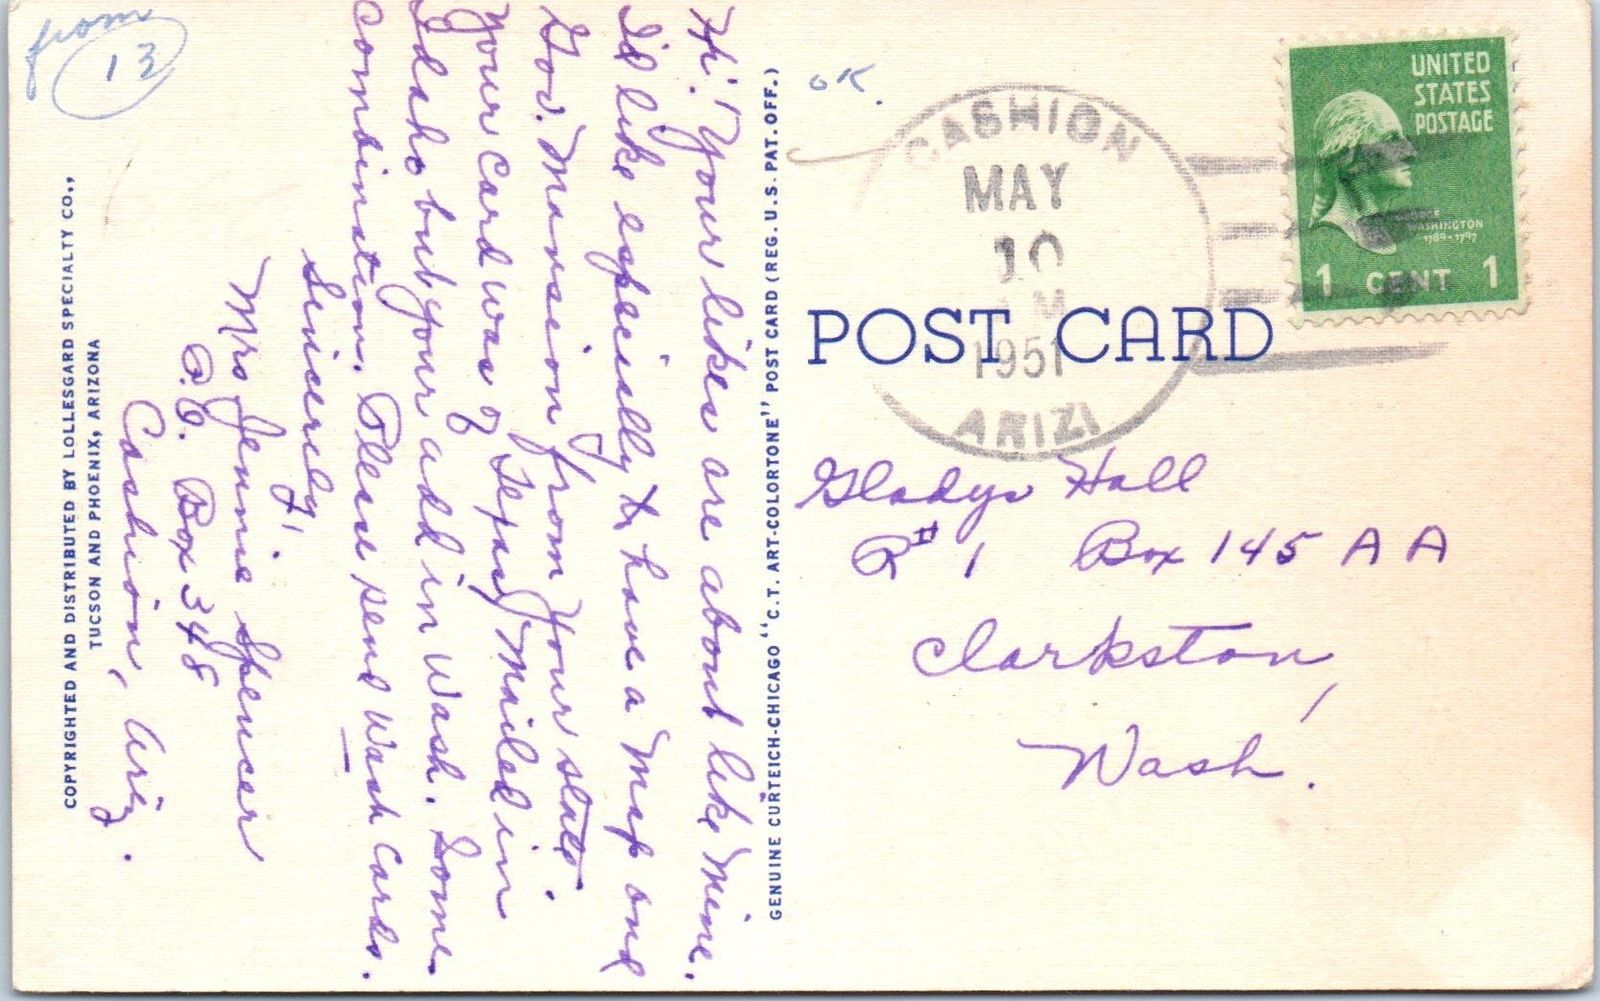 from
13
OK.
UNITED
STATES
POSTAGE
GEORGE
WASHINGTON
1789-1797
1 CENT 1
CASHION
MAY
10
AM
1951
ARIZ
POST CARD
Hi! Your likes are about like mine.
I'd like especially to have a Map and
Gov. Mansion from your state.
Your card was of Texas, Mailed in
Idaho but your add in Wash. Some
combination. Please send Wash Cards.
Sincerely,
Mrs Jennie Spencer
P.O. Box 348
Cashion, Ariz.
Gladys Hall
R# 1 Box 145 A A
Clarkston,
Wash.
GENUINE CURTEICH-CHICAGO "C.T. ART-COLORTONE" POST CARD (REG. U.S. PAT. OFF.)
COPYRIGHTED AND DISTRIBUTED BY LOLLESGARD SPECIALTY CO.,
TUCSON AND PHOENIX, ARIZONA